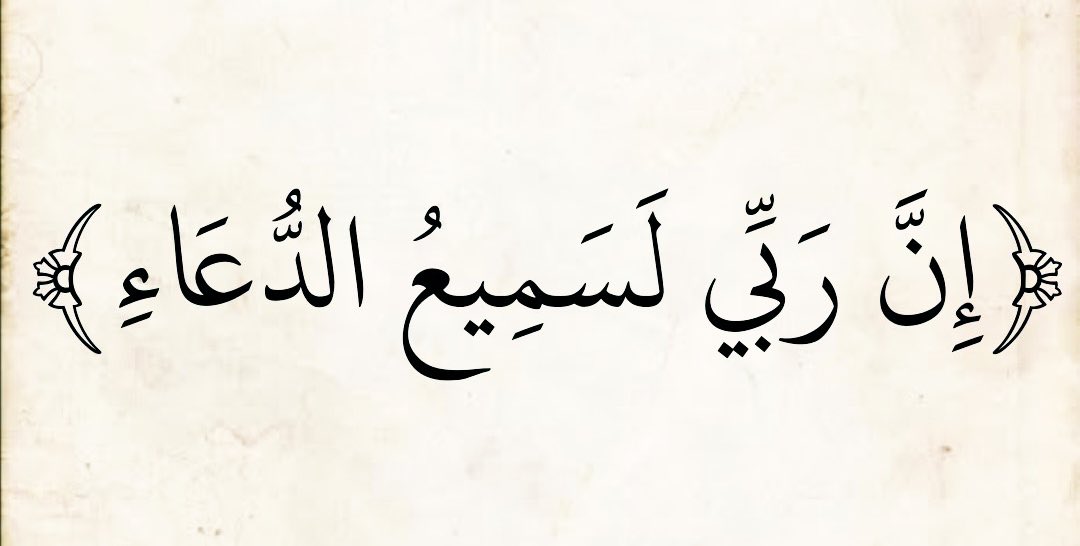 ﴿ إِنَّ رَبِّي لَسَمِيعُ الدُّعَاءِ ﴾